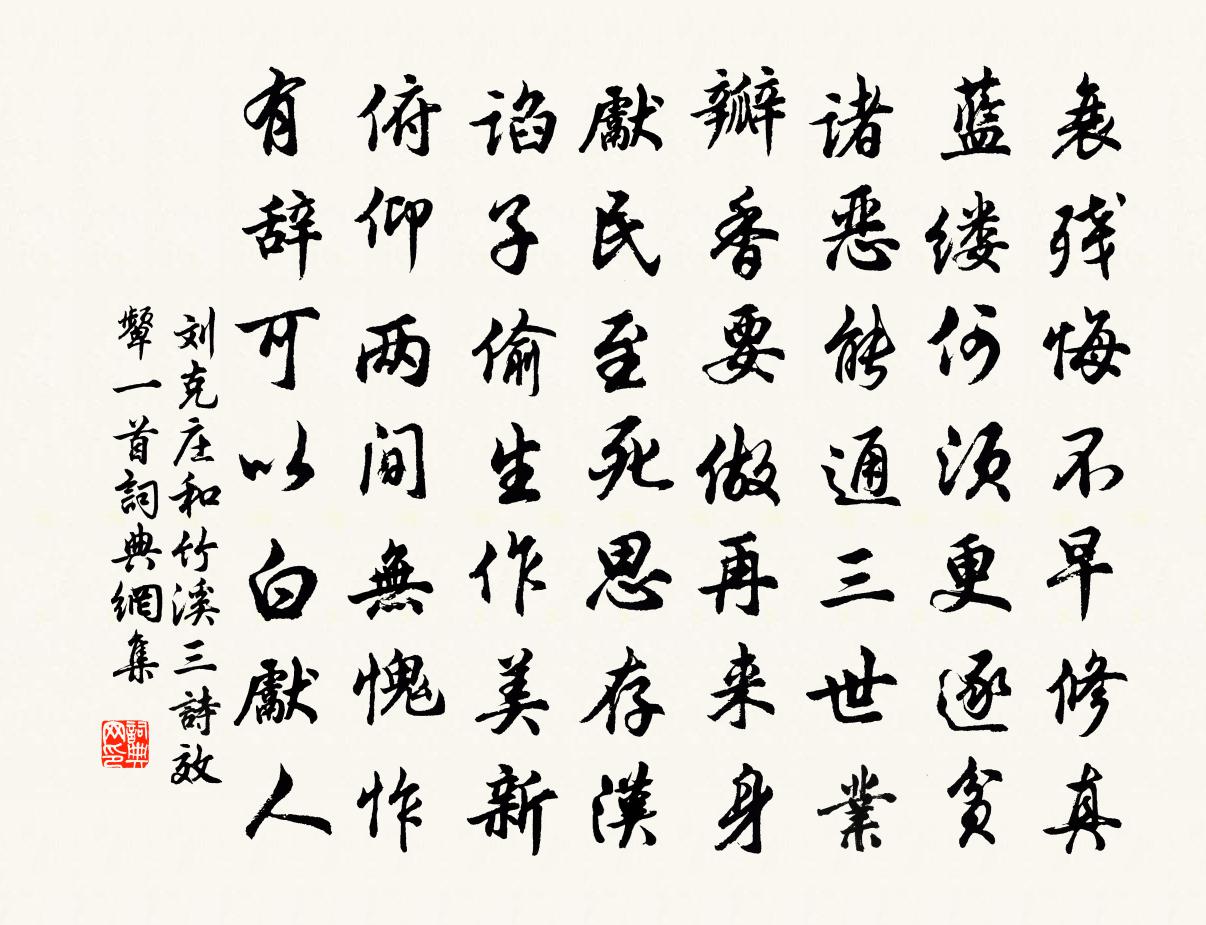 衰残悔不早修真
蓝缕何须更逐贫
诸恶能通三世業
瓣香要做再来身
獻民至死思存漢
谄子偷生作美新
俯仰两间無愧怍
有辞可以白獻人
刘克庄和竹溪三詩效
顰一首詞典網集
詞典
网印